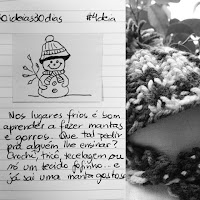 30ideias30dias #4dea
Nos lugares frios é bom
aprender a fazer mantas
e gorros.. Que tal pedir
pra alguém lhe ensinar?
Crochê, tricô, tecelagem ou
só um tecido fofinho.. e
já sai uma manta gostos